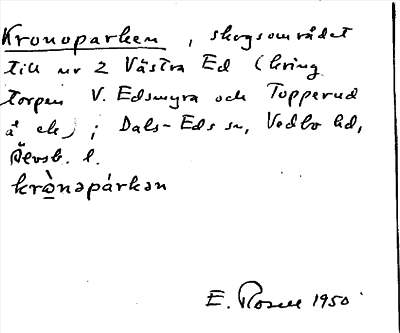 Kronoparken, skogsområdet
till nr 2 Västra Ed (kring
torpen V. Edsmyra och Topperud
å ek); Dals-Eds sn, Vedbo hd,
Älvsb. l.
krònəpárkən
E. Rosell 1950